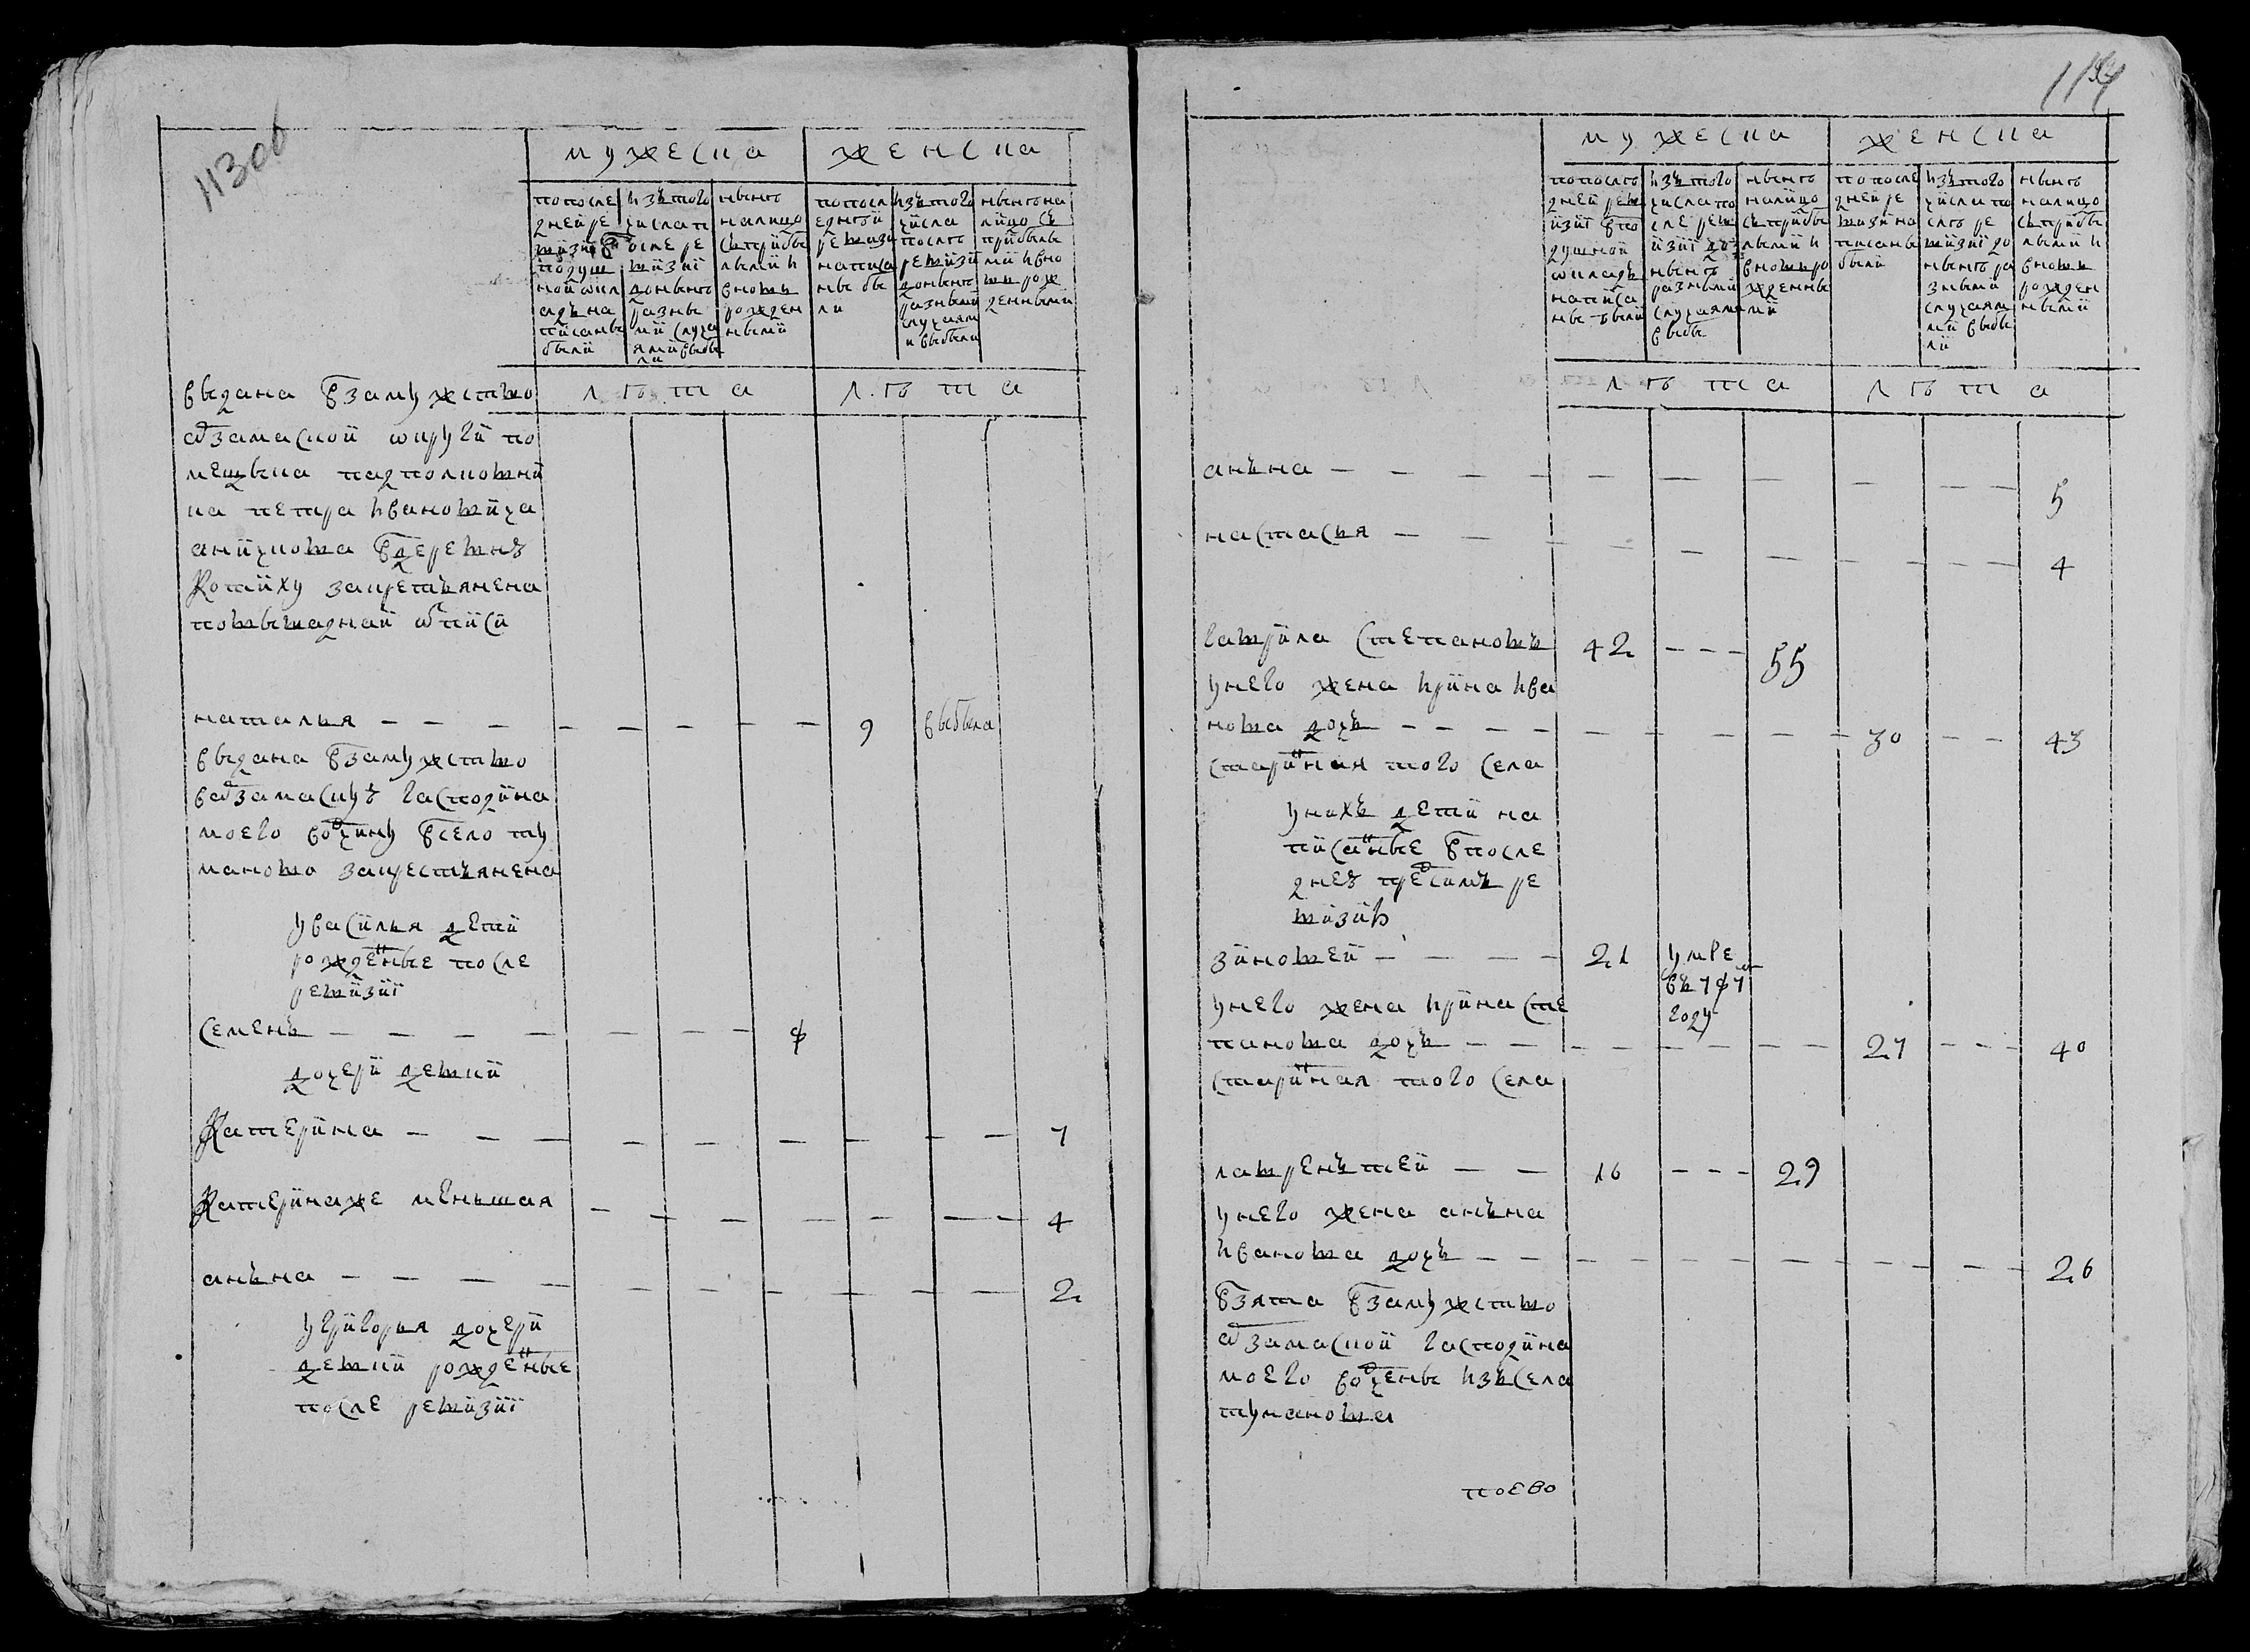 113об
мужеска
женска
попосле
дней ре
визиї в
подуш
ной окл
адъ на
писаны
были
изътого
числа п
осле ре
визиї
доныне
разны
ми случа
ями выбы
ли
ныне
налицо
съприбы
лыми и
вновь
рожден
ными
попосл
едней
ревизи
написа
ны бы
ли
изътого
числа
после
ревизи
доныне
разными
случаям
и выбыли
нынена
лицо съ
прибылы
ми ивно
вь рож
денными
лета
лета
выдана взамужство
арзамаской округи по
мещика падполковни
ка петра ивановича
аничкова вдеревню
Котиху закрестьянена
повывадной описи
наталья
9
выбыла
выдана взамужство
варзамаскую гасподина
моего вотчину всело ту
маново закрестьянена
увасилья дети
рожденые после
ревизиї
семенъ
дочери девки
Катерина
7
Катеринаже меньшая
4
анъна
2
угригорья дочери
девки рожденые
после ревизиї
114
мужеска
женска
попосле
дней рев
изиї впо
душной
окладъ
написа
ны были
изътого
числа по
сле рев
изиї до
ныне
разными
случаями
выбы
ныне
налицо
съприбы
лыми и
вновь ро
жденны
ми
попосле
дней ре
визи на
писаны
были
изътого
числа по
сле ре
визиї до
ныне ра
зными
случаям
ми выбы
ли
ныне
налицо
съприбы
лыми и
вновь
рожден
ными
лета
лета
анъна
5
настасья
4
гаврила степановъ
42
55
унего жена ирина ива
нова дочь
30
43
старинная того села
унихъ дети на
писанные впосле
днею пред симъ ре
визию
зиновей
21
умре
въ 787
году
унего жена ирина сте
панова дочь
27
40
старинная того села
лаврентей
16
29
унего жена анъна
иванова дочь
26
взята взамужство
арзамаской гасподина
моего вотчены изъсела
туманова
поево